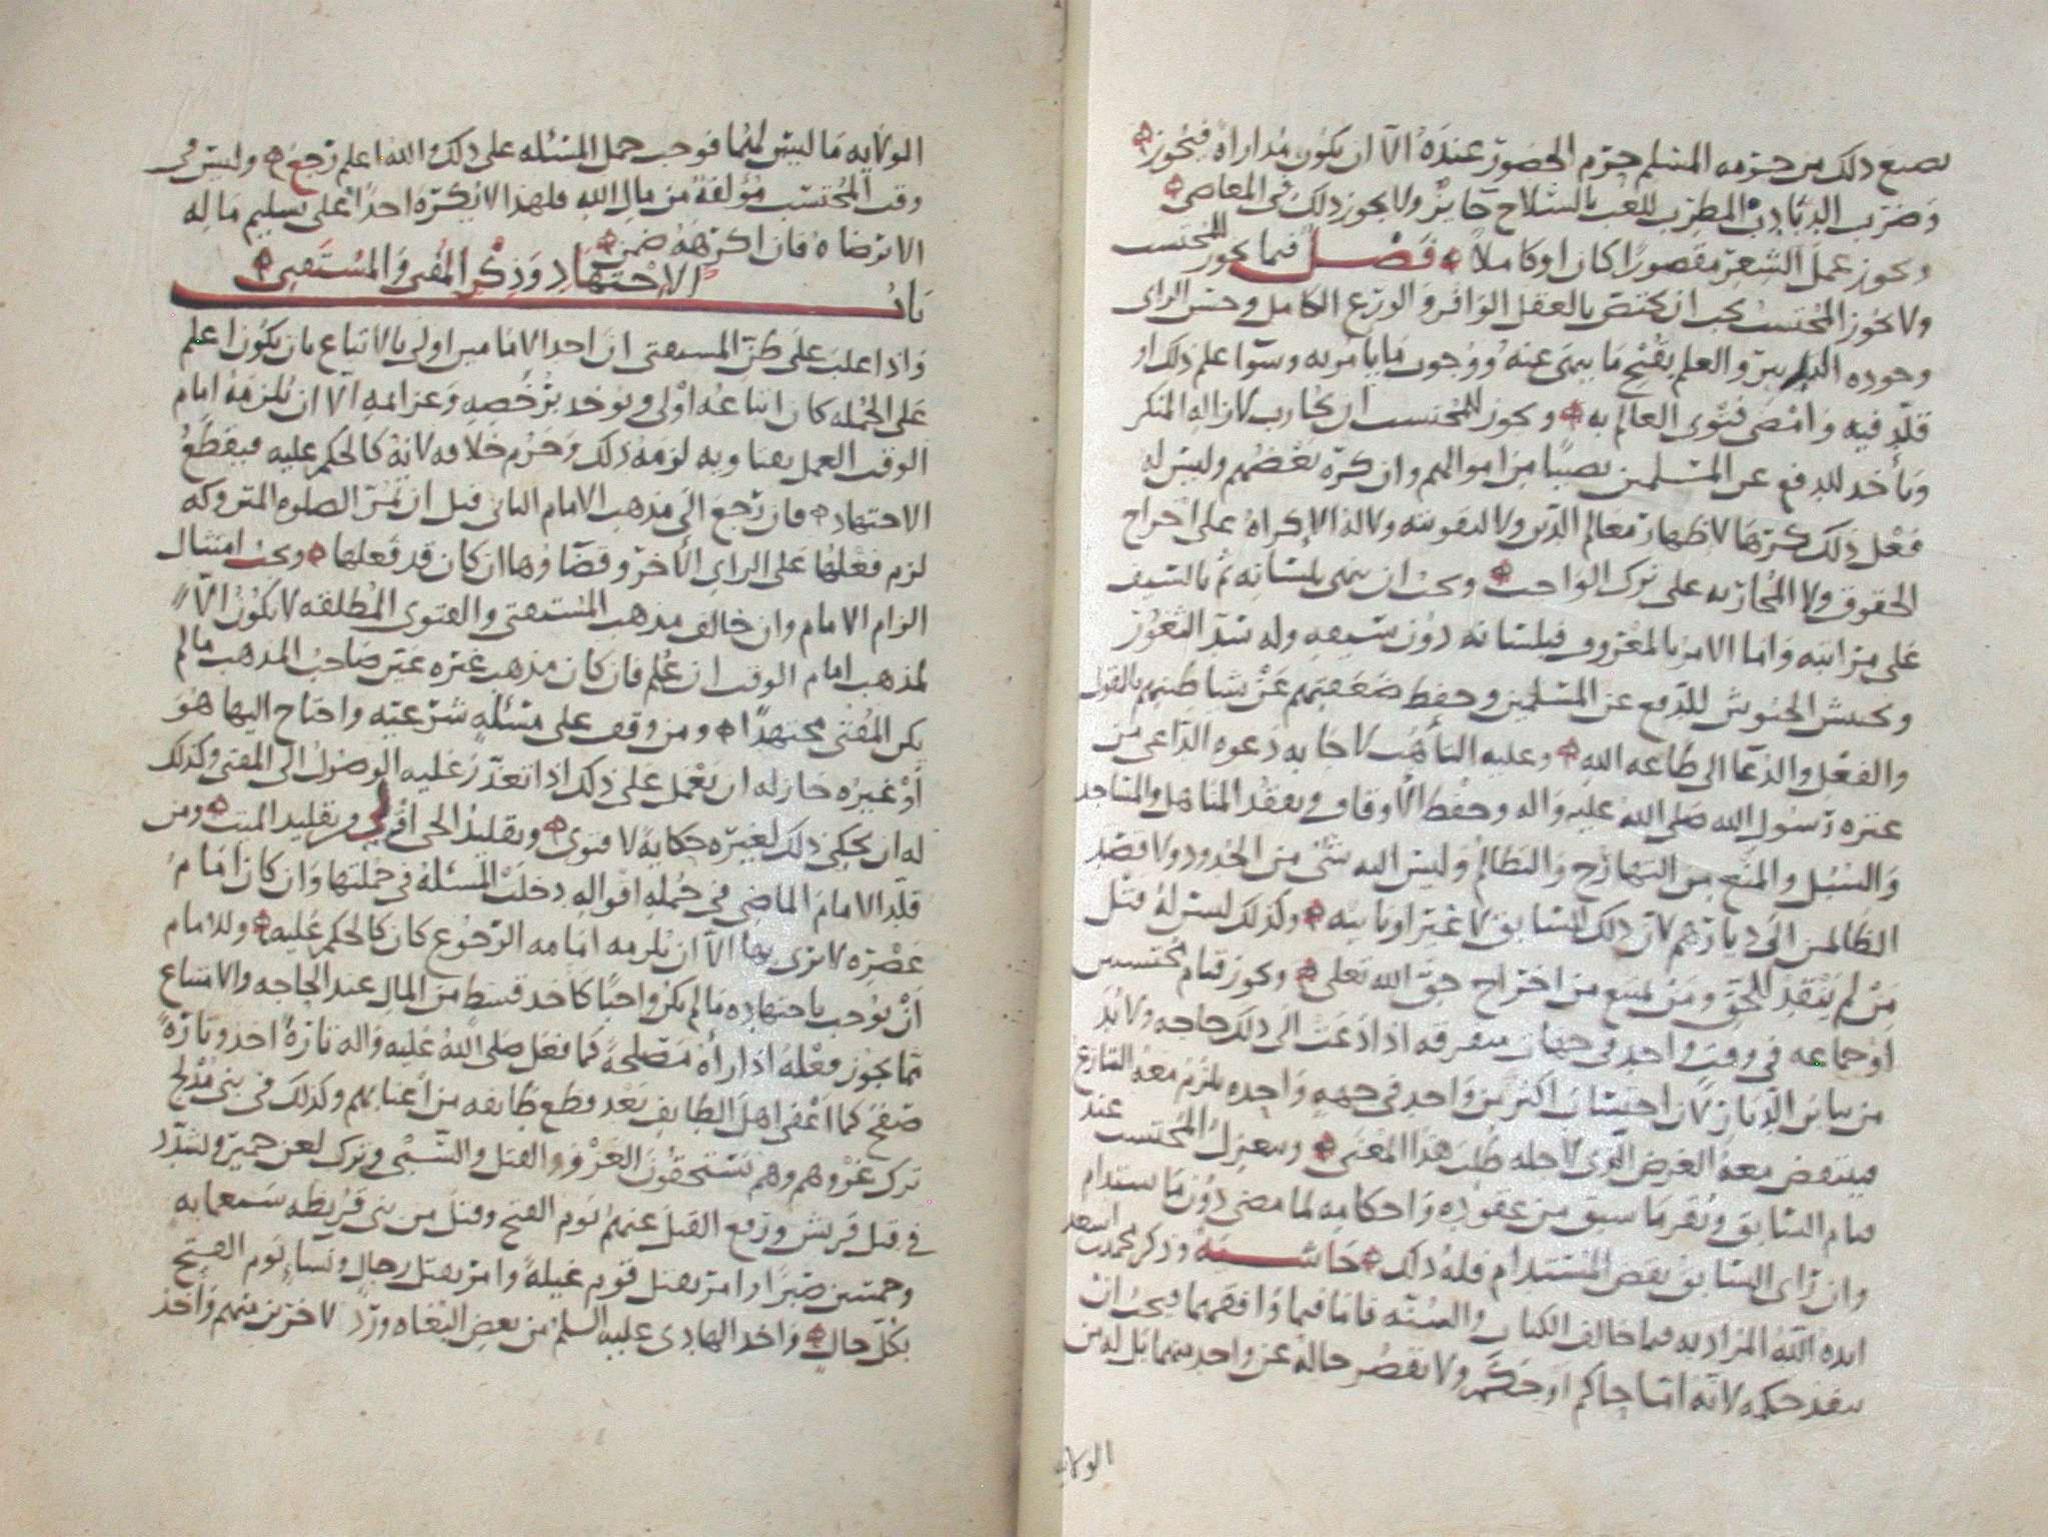 يصنع ذلك من حرمه المسلم حرم الحضور عنده الا ان يكون مداراه فيجوز
وضرب الدبادب المطرب للعب بالسلاح جايز ولا يجوز ذلك في المعاصي
ويجوز عمل الشعر مقصورا كان او كاملا فصل فيما يجوز للمحتسب
ولا يجوز المحتسب يجب ان يختص بالعقل الوافر والورع الكامل وحسن الراى
وجوده التدبير والعلم بقبح ما ينهى عنه ووجوب ما يامر به وسوا علم ذلك او
قلد فيه وامضى فتوى العالم به ويجوز للمحتسب ان يحارب لازاله المنكر
وياخذ للدفع عن المسلمين نصيبا من اموالهم وان كره بعضهم وليس له
فعل ذلك كرها لاظهار معالم الدين ولا لتقويته ولا له الاكراه على اخراج
الحقوق ولا المحاربه على ترك الواجب ويجب ان ينهى بلسانه ثم بالسيف
على مراتبه واما الامر بالمعروف فبلسانه دون سيفه وله سد الثغور
وتجييش الجيوش للدفع عن المسلمين وحفظ ضعفتهم عن شياطينهم بالقول
والفعل والدعا الى طاعه الله وعليه التاهب لاجابه دعوه الداعى من
عتره رسول الله صلى الله عليه واله وحفظ الاوقاف وتفقد المناهل والمساجد
والسبل والمنع من التهارج والتظالم وليس اليه شئ من الحدود ولا قصد
الظالمين الى ديارهم لان ذلك للسابق لا غير او نايبه وكذلك ليس له قتل
من لم ينقد للحق ومن يمنع من اخراج حق الله تعلى ويجوز قيام محتسبين
او جماعه في وقت واحد في جهات متفرقه اذا دعت الى ذلك حاجه ولا بد
من تباين الديار لان احتساب اكثر من واحد في جهه واحده يلزم معه التنازع
فينتقض معه الغرض الذى لاجله طلب هذا المعنى وينعزل المحتسب عند
قيام السابق ويقر ما سبق من عقوده واحكامه لما مضى دون ما يستدام
وان راى السابق نقض المستدام فله ذلك حاشيه وذكر محمد بن اسعد
ايده الله المراد به فيما خالف الكتاب والسنه فاما فيما وافقهما فيجب ان
ينفذ حكمه لانه اما حاكم او حكم ولا يقصر حاله عن واحد منهما بل له من
الولايه
الولايه ما ليس لهما فوجب حمل المسئله على ذلك والله اعلم رجع وليس في
وقت المحتسب مؤلفه من مال الله فلهذا لا يكره احدا على تسليم ماله
الا برضاه فان اكرهه ضمن
باب الاجتهاد وذكر المفتى والمستفتى
واذا غلب على ظن المستفتى ان احد الامامين اولى بالاتباع بان يكون اعلم
على الجمله كان اتباعه اولى ويوخذ برخصه وعزايمه الا ان يلزمه امام
الوقت العمل بفتاويه لزمه ذلك وحرم خلافه لانه كالحكم عليه فيقطع
الاجتهاد فان رجع الى مذهب الامام الثانى قبل ان يمر الصلوه المتروكه
لزم فعلها على الراي الاخر وقضاوها ان كان قد فعلها ويجب امتثال
الزام الامام وان خالف مذهب المستفتى والفتوى المطلقه لا يكون الا
لمذهب امام الوقت ان علم فان كان مذهب غيره عين صاحب المذهب ما لم
يكن المفتى مجتهدا ومن وقف على مسئله شرعيه واحتاج اليها هو
او غيره جاز له ان يعمل على ذلك اذا تعذر عليه الوصول الى المفتى وكذلك
له ان يحكى ذلك لغيره حكايه لا فتوى وتقليد الحى اولى من تقليد الميت ومن
قلد الامام الماضى في جمله اقواله دخلت المسئله في جملتها وان كان امام
عصره لا يرى بها الا ان يلزمه امامه الرجوع كان كالحكم عليه وللامام
ان يوجب باجتهاده ما لم يكن واجبا كاخذ قسط من المال عند الحاجه والامتناع
مما يجوز فعله اذا راه مصلحه كما فعل صلى الله عليه واله تاره احد وتاره
صفح كما اعفى اهل الطايف بعد قطع طايفه من اعنابهم وكذلك في بنى مدلج
ترك غزوهم وهم يستحقون الغزو والقتل والسبى وترك لعن حمير وشدد
في قتل قريش ورفع القتل عنهم يوم الفتح وقتل من بنى قريظه سبعمايه
وخمسين صبرا وامر بقتل قوم غيله وامر بقتل رجال ونسا يوم الفتح
بكل حال واخذ الهادى عليه السلم من بعض البغاه ورد لاخرين منهم واخذ